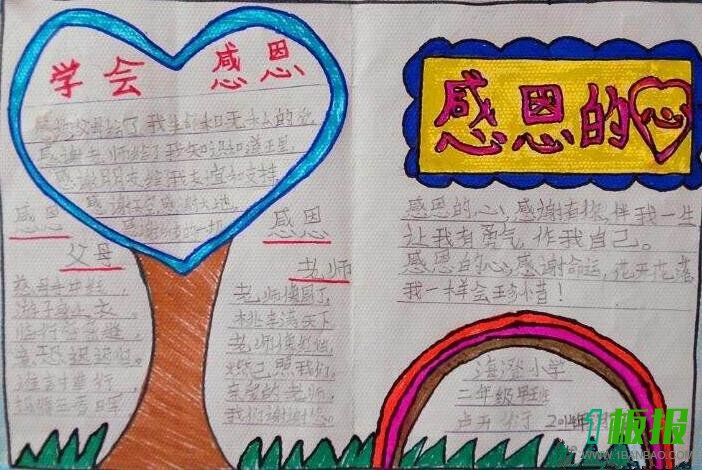 学会 感恩
感谢父母给了我生命和无私的爱
感谢老师给了我知识和
感谢朋友给了我友谊和支持
感谢 感谢大地
感谢 的一切
感恩
父母
慈母手中线，
游子身上衣，
临行密密缝，
意恐迟迟归。
谁言寸草
报得三春晖
感恩
老师
老师像园丁，
桃李满天下
老师像
照我们，
的老师，
我们谢谢您。
感恩的心
感恩的心，感谢有你，伴我一生
让我有勇气作我自己。
感恩的心，感谢命运，花开花落
我一样会珍惜！
海澄小学
二年级 班
2014年
1板报
WWW.1BANBAO.COM